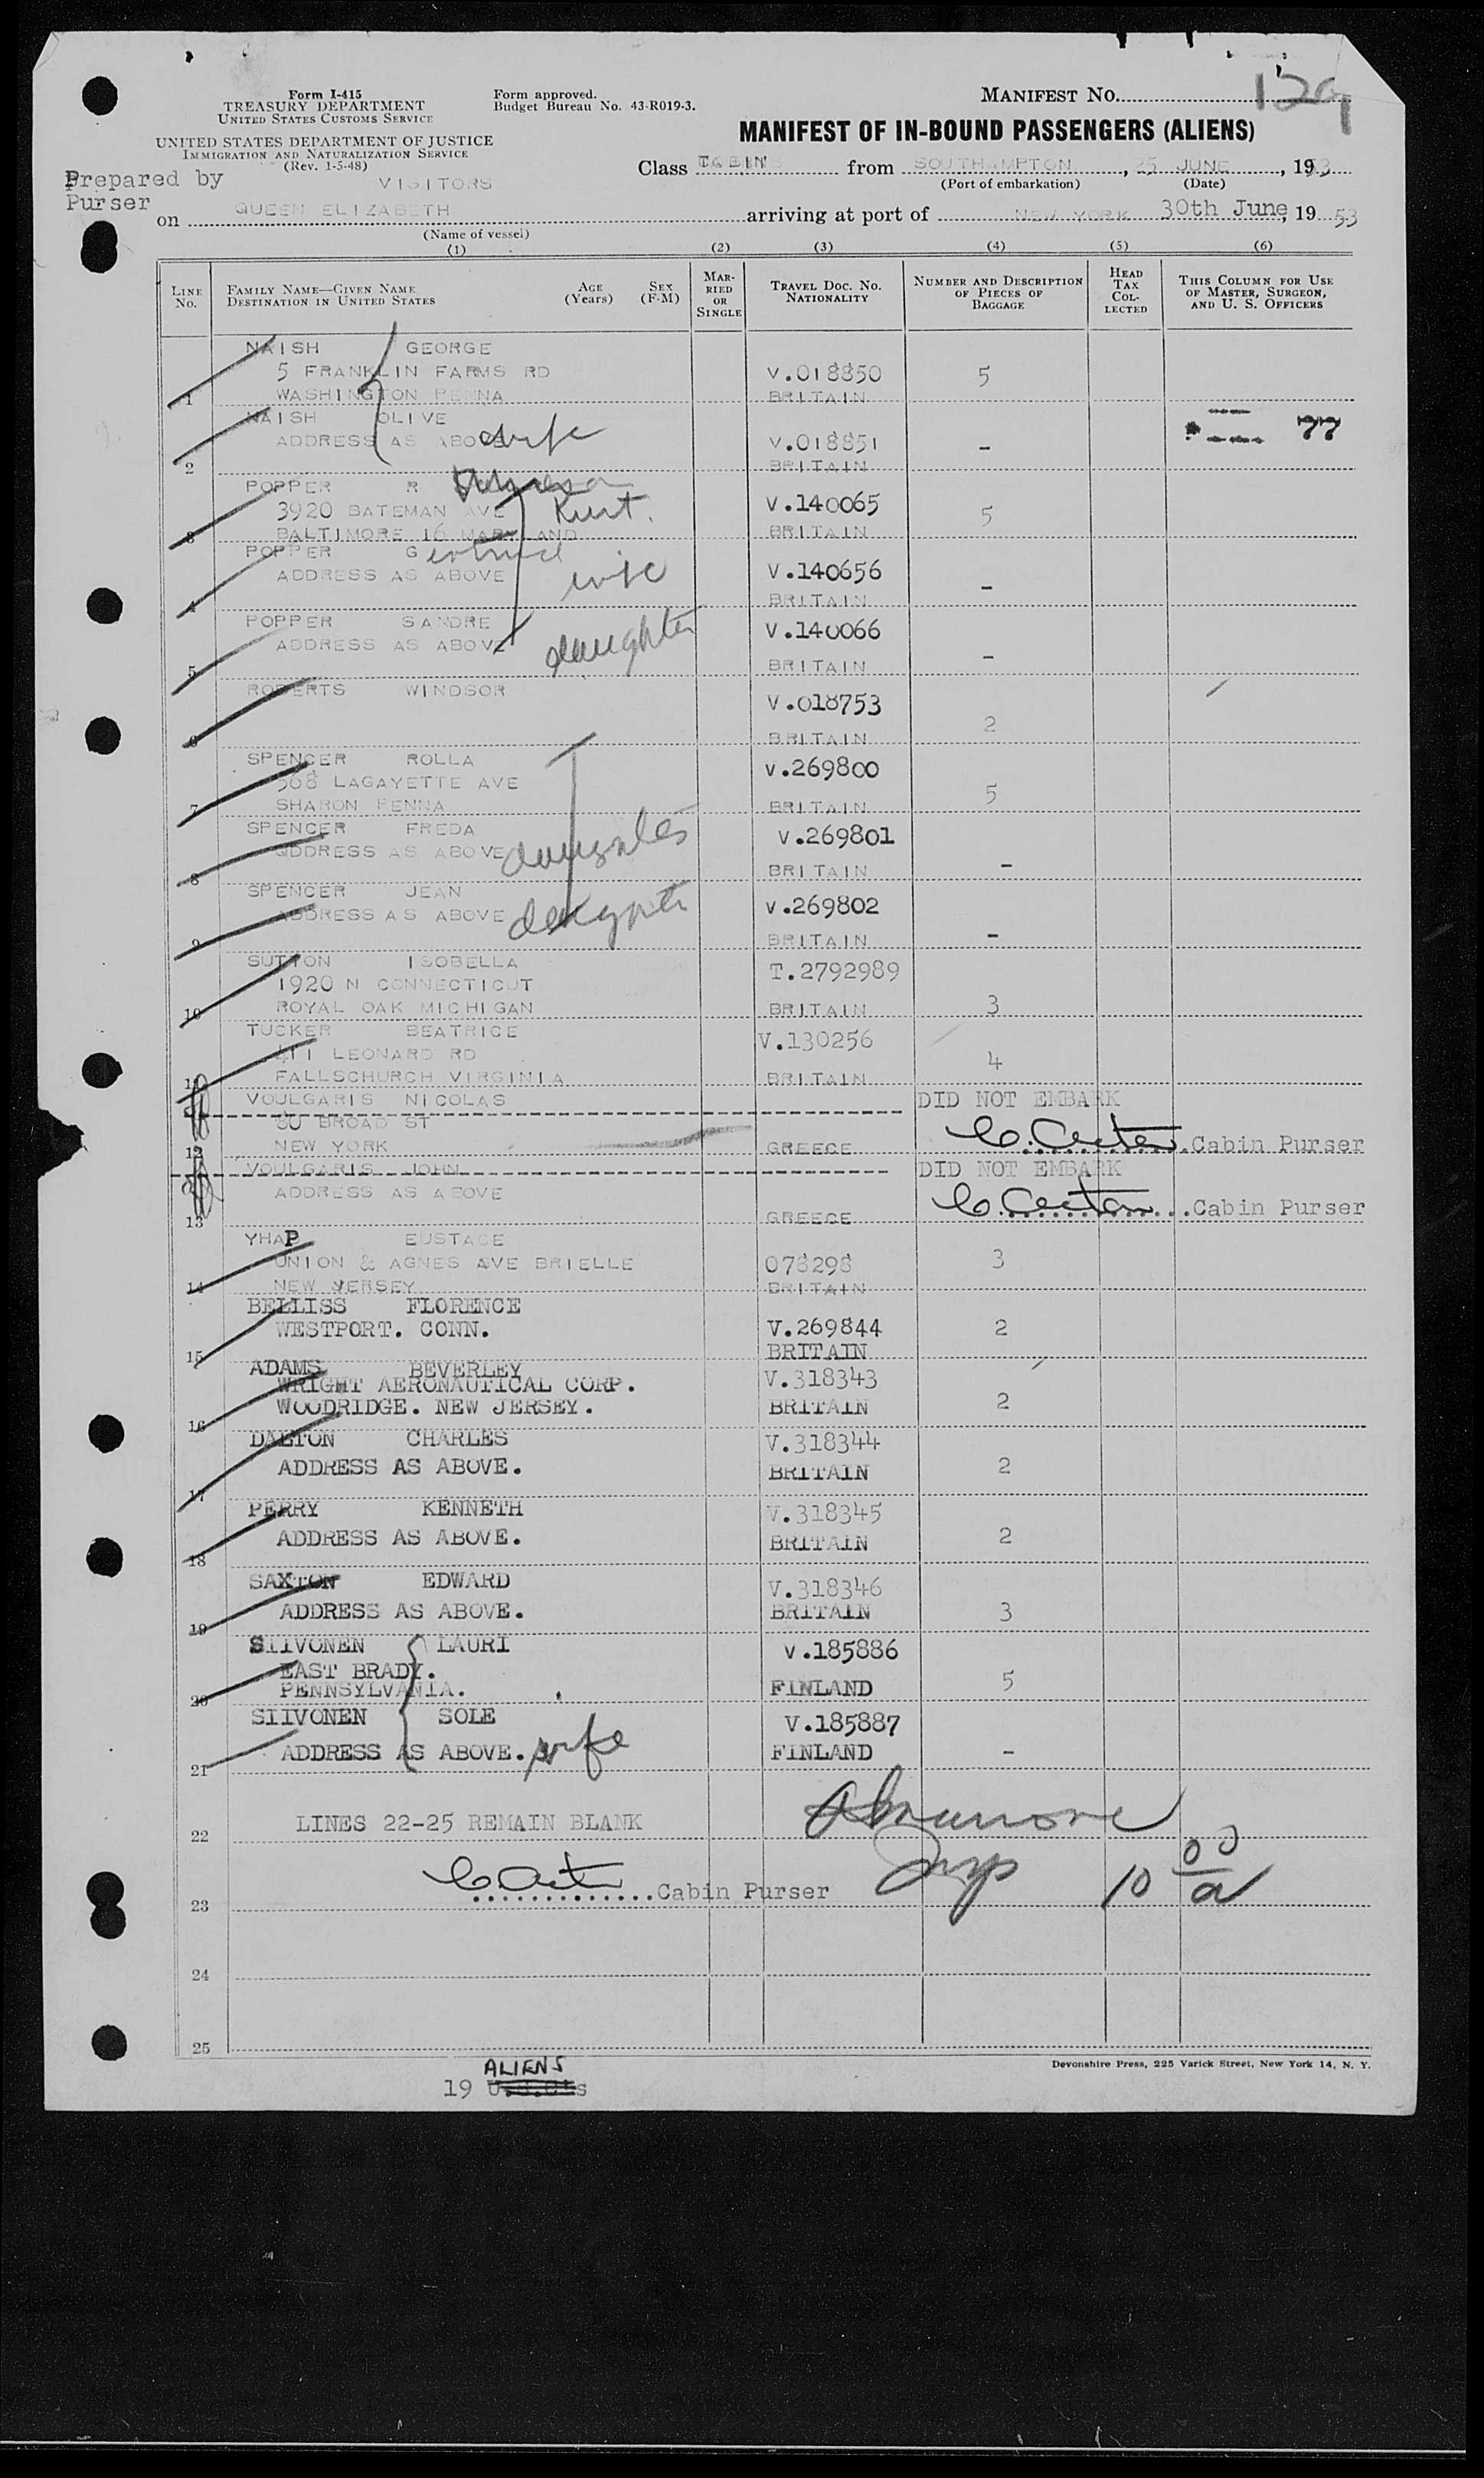 Form I-415
TREASURY DEPARTMENT
UNITED STATES CUSTOMS SERVICE
UNITED STATES DEPARTMENT OF JUSTICE
IMMIGRATION AND NATURALIZATION SERVICE
(Rev. 1-5-48)
Form approved.
Budget Bureau No. 43-R019-3.
MANIFEST NO. 129
MANIFEST OF IN-BOUND PASSENGERS (ALIENS)
Class CABIN from SOUTHAMPTON, 25 JUNE, 1953
(Port of embarkation) (Date)
Prepared by
Purser
VISITORS
on QUEEN ELIZABETH arriving at port of NEW YORK 30th June, 19 53
(Name of vessel)
(1) (2) (3) (4) (5) (6)
LINE NO. FAMILY NAME—GIVEN NAME DESTINATION IN UNITED STATES AGE (Years) SEX (F-M) MARRIED OR SINGLE TRAVEL DOC. NO. NATIONALITY NUMBER AND DESCRIPTION OF PIECES OF BAGGAGE HEAD TAX COLLECTED THIS COLUMN FOR USE OF MASTER, SURGEON, AND U. S. OFFICERS
NAISH GEORGE
5 FRANKLIN FARMS RD V.018850 5
1 WASHINGTON PENNA BRITAIN
NAISH OLIVE 77
ADDRESS AS ABOVE wife V.018851 -
2 BRITAIN
POPPER R
3920 BATEMAN AVE Kurt. V.140065 5
3 BALTIMORE 16 MARYLAND BRITAIN
POPPER Gertrud
ADDRESS AS ABOVE wife V.140656 -
4 BRITAIN
POPPER SANDRE V.140066
ADDRESS AS ABOVE daughter -
5 BRITAIN
ROBERTS WINDSOR V.018753
2
6 BRITAIN
SPENCER ROLLA V.269800
568 LAGAYETTE AVE 5
7 SHARON PENNA BRITAIN
SPENCER FREDA V.269801
ADDRESS AS ABOVE daughter -
8 BRITAIN
SPENCER JEAN V.269802
ADDRESS AS ABOVE daughter -
9 BRITAIN
SUTTON ISOBELLA T.2792989
1920 N CONNECTICUT
10 ROYAL OAK MICHIGAN BRITAIN 3
TUCKER BEATRICE V.130256
411 LEONARD RD 4
11 FALLSCHURCH VIRGINIA BRITAIN
VOULGARIS NICOLAS DID NOT EMBARK
80 BROAD ST
12 NEW YORK GREECE Cabin Purser
VOULGARIS JOHN DID NOT EMBARK
ADDRESS AS ABOVE
13 GREECE Cabin Purser
YHAP EUSTACE
UNION & AGNES AVE BRIELLE 078298 3
14 NEW JERSEY BRITAIN
BELLISS FLORENCE
WESTPORT. CONN. V.269844 2
15 BRITAIN
ADAMS BEVERLEY V.318343
WRIGHT AERONAUTICAL CORP.
16 WOODRIDGE. NEW JERSEY. BRITAIN 2
DALTON CHARLES V.318344
ADDRESS AS ABOVE. BRITAIN 2
17
PERRY KENNETH V.318345
ADDRESS AS ABOVE. BRITAIN 2
18
SAXTON EDWARD V.318346
ADDRESS AS ABOVE. BRITAIN 3
19
SIIVONEN LAURI V.185886
EAST BRADY.
20 PENNSYLVANIA. FINLAND 5
SIIVONEN SOLE V.185887
ADDRESS AS ABOVE. wife FINLAND -
21
LINES 22-25 REMAIN BLANK
22
Cabin Purser Insp 10 00/a
23
24
25
Devonshire Press, 225 Varick Street, New York 14, N. Y.
ALIENS
19